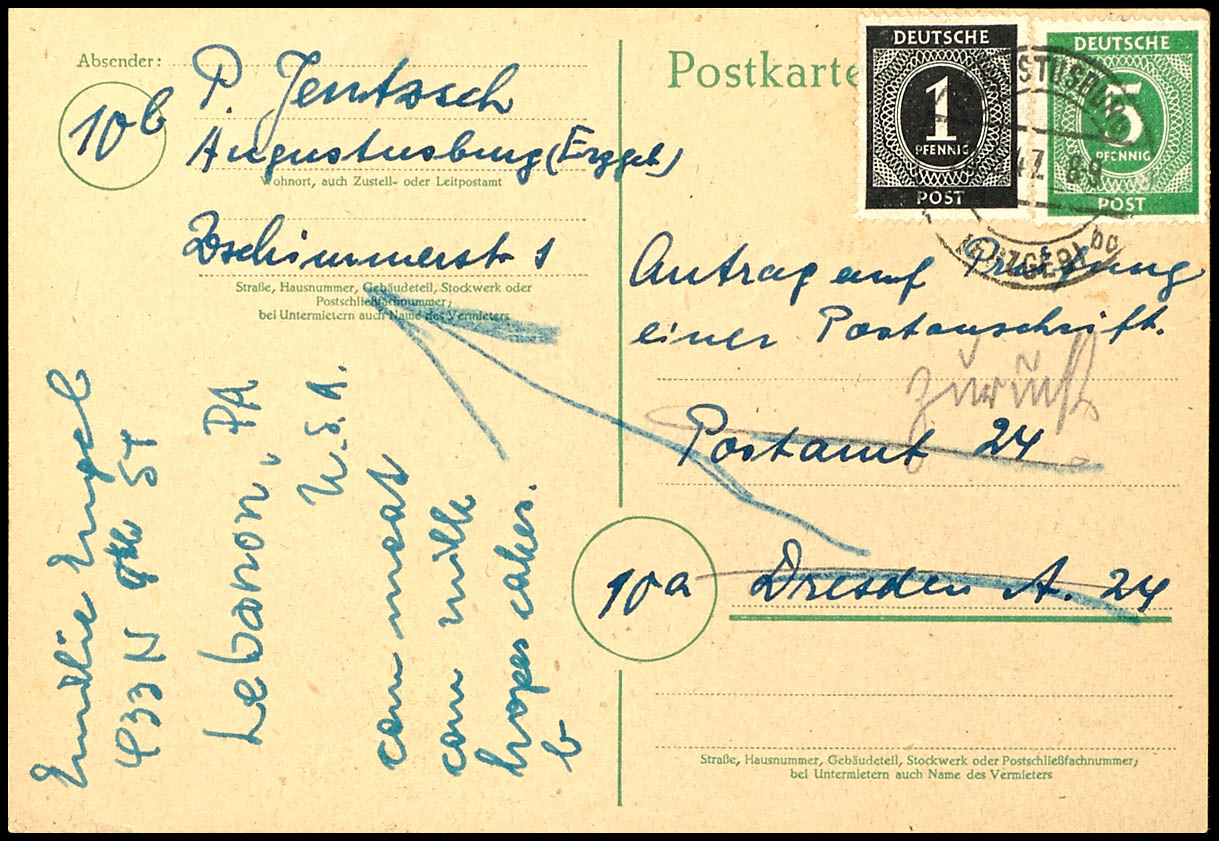 Absender:
P. Jentzsch
10b
Augustusburg (Erzgeb)
Wohnort, auch Zustell- oder Leitpostamt
Zschimmerstr 1
Straße, Hausnummer, Gebäudeteil, Stockwerk oder
Postschließfachnummer;
bei Untermietern auch Name des Vermieters
Postkarte
DEUTSCHE
1
PFENNIG
POST
DEUTSCHE
5
PFENNIG
POST
47 8-9
(ERZGEB)
Antrag auf Prüfung
einer Postanschrift.
zurück
Postamt 24
10a
Dresden A. 24
Straße, Hausnummer, Gebäudeteil, Stockwerk oder Postschließfachnummer;
bei Untermietern auch Name des Vermieters
Emilie Engel
433 N 9th ST
Lebanon, PA
U.S.A.
can meat
can milk
cakes.
b